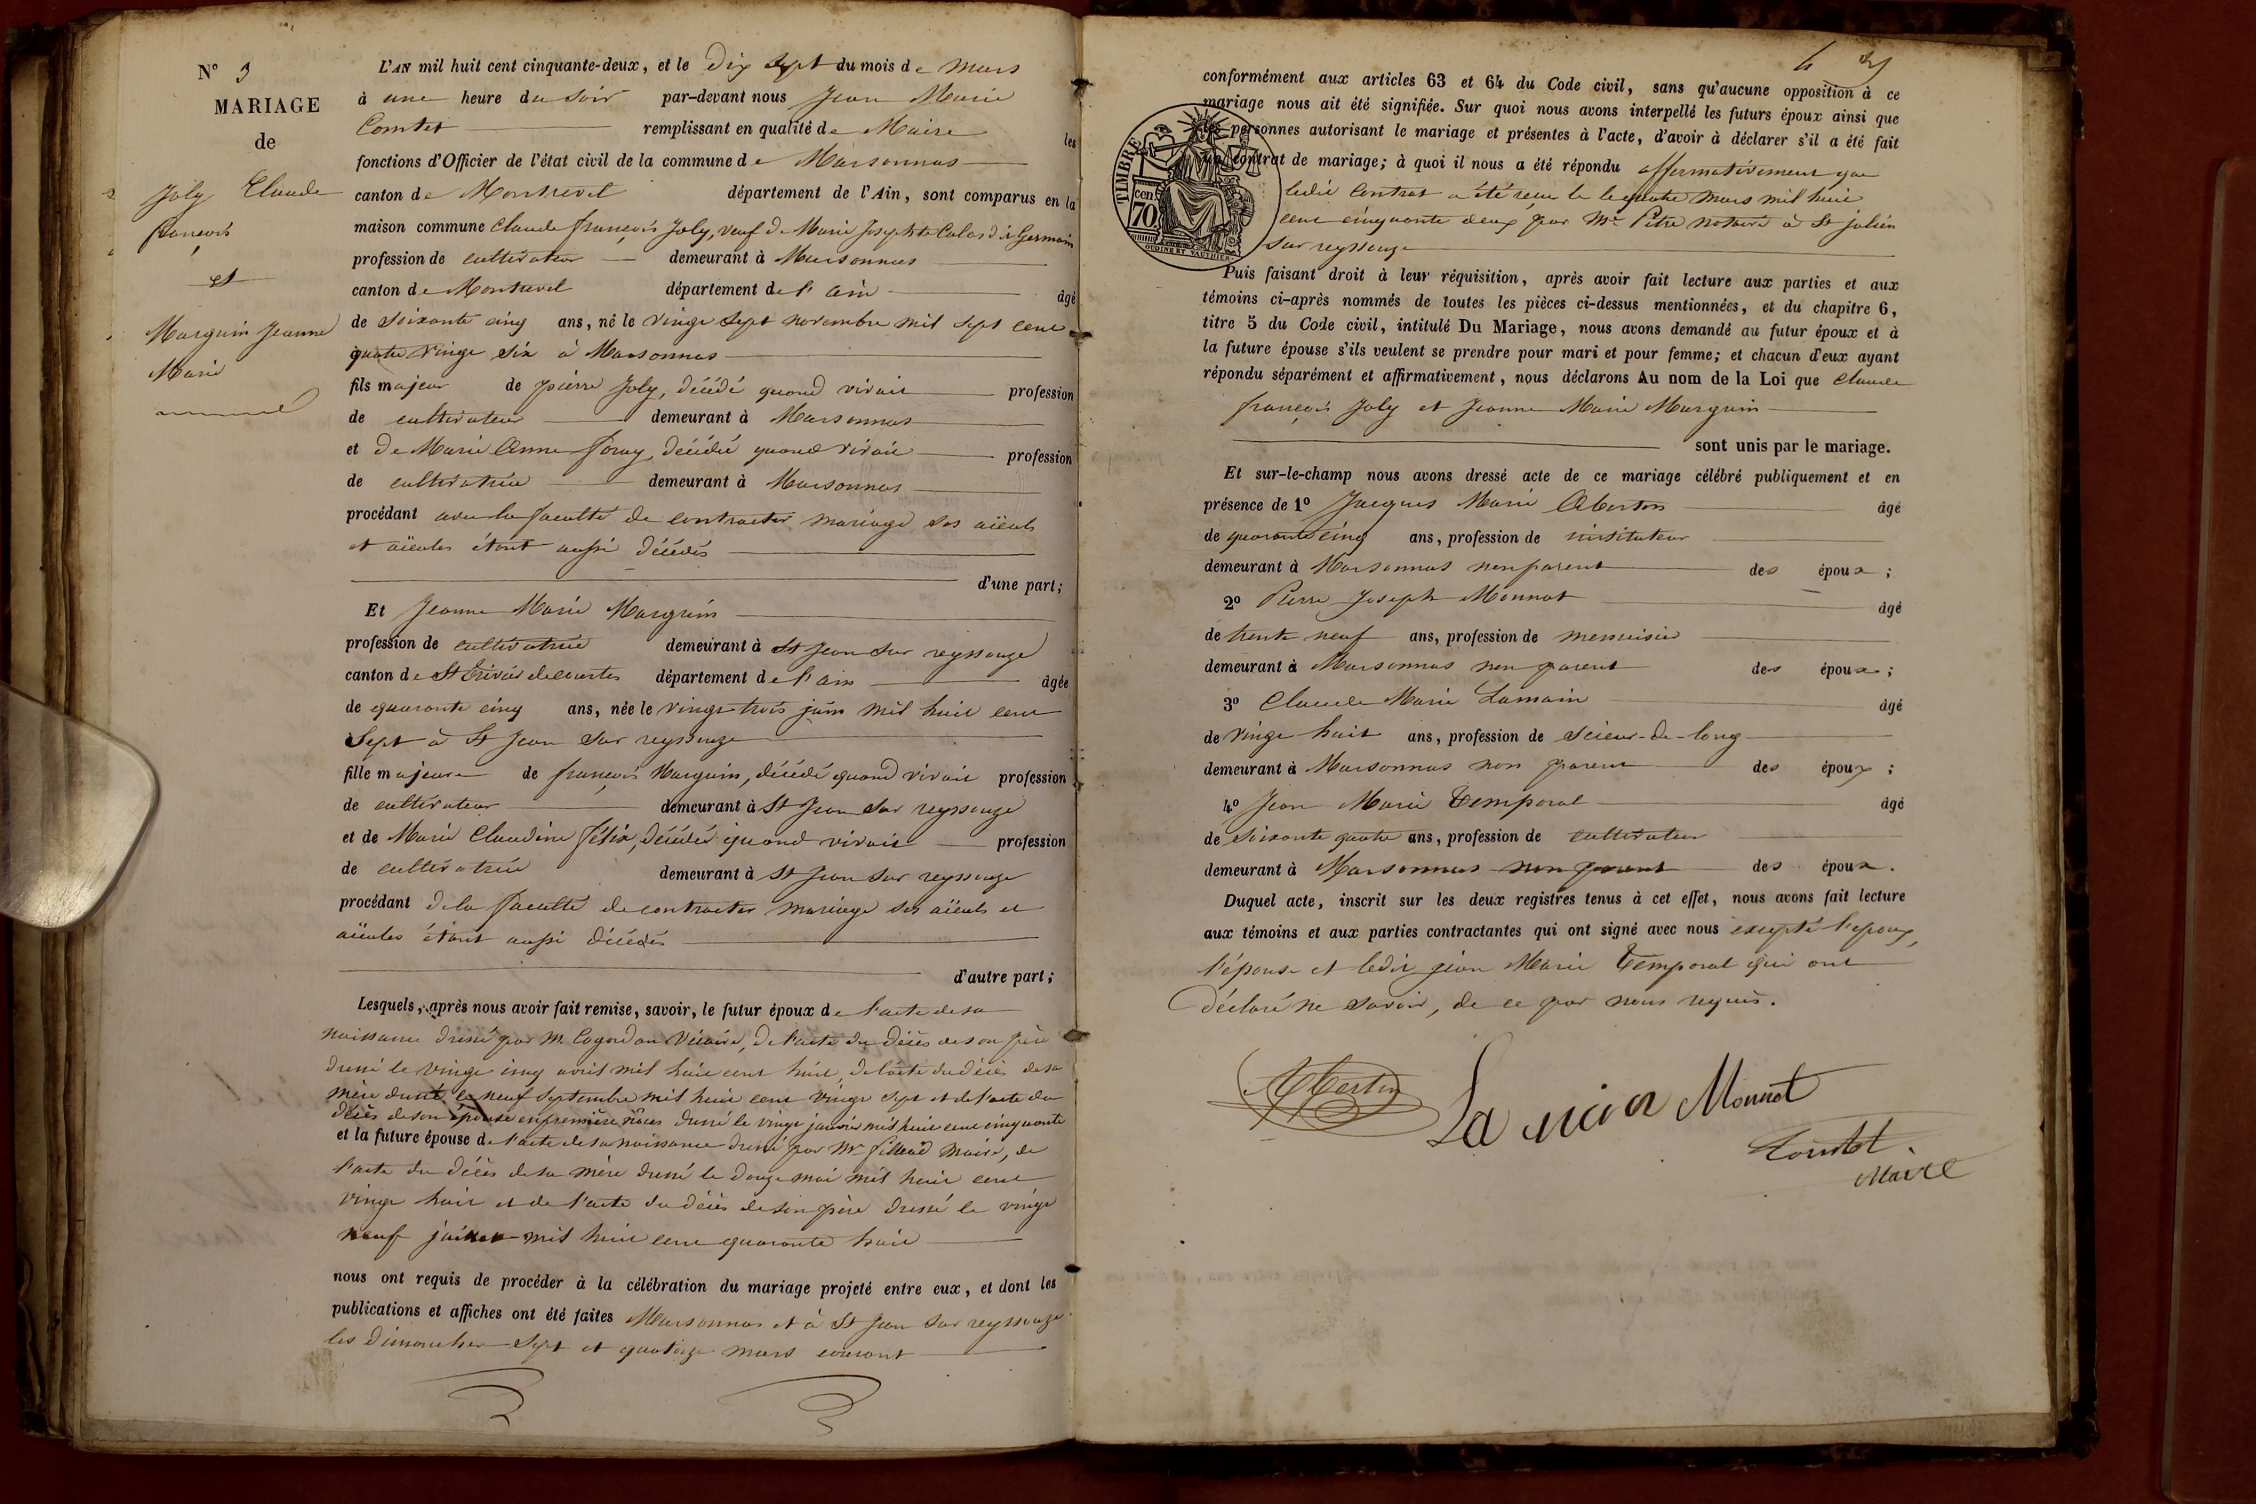 N° 3
MARIAGE
de
Joly Claude
françois
et
Marguin Jeanne
Marie
L'AN mil huit cent cinquante-deux, et le Dix Sept du mois de Mars
à une heure du soir par-devant nous Jean Marie
Comtet remplissant en qualité de Maire les
fonctions d'Officier de l'état civil de la commune de Marsonnas
canton de Montrevel département de l'Ain, sont comparus en la
maison commune Claude françois Joly, veuf de Marie Josephte Calas dit Germain
profession de cultivateur demeurant à Marsonnas
canton de Montrevel département de l'ain âgé
de soixante cinq ans, né le vingt sept novembre mil sept cent
quatre vingt six à Marsonnas
fils majeur de pierre Joly, décédé quand vivait profession
de cultivateur demeurant à Marsonnas
et de Marie Anne foray, décédée quand vivait profession
de cultivatrice demeurant à Marsonnas
procédant avec la faculté de contracter mariage ses aïeuls
et aïeules étant aussi décédés
d'une part;
Et Jeanne Marie Marguin
profession de cultivatrice demeurant à St Jean sur reyssouze
canton de St Trivier de courtes département de l'ain âgée
de quarante cinq ans, née le vingt trois juin mil huit cent
Sept à St Jean sur reyssouze
fille majeure de françois Marguin, décédé quand vivait profession
de cultivateur demeurant à St Jean sur reyssouze
et de Marie Claudine félix, décédée quand vivait profession
de cultivatrice demeurant à St Jean sur reyssouze
procédant de la faculté de contracter mariage ses aïeuls et
aïeules étant aussi décédés
d'autre part;
Lesquels, après nous avoir fait remise, savoir, le futur époux de l'acte de sa
naissance dressé par M. Vicaire, de l'acte du décès de son père
dressé le vingt cinq avril mil huit cent huit, de l'acte du décès de sa
mère dressé le neuf Septembre mil huit cent vingt sept et de l'acte du
décès de son épouse en première nôces dressé le vingt janvier mil huit cent cinquante
et la future épouse de l'acte de sa naissance dressé par Mr Maire, de
l'acte du décès de sa mère dressé le douze mai mil huit cent
vingt huit et de l'acte du décès de son père dressé le vingt
neuf mil huit cent quarante huit
nous ont requis de procéder à la célébration du mariage projeté entre eux, et dont les
publications et affiches ont été faites Marsonnas et à St Jean sur reyssouze
les Dimanches Sept et quatorze mars courant
4
conformément aux articles 63 et 64 du Code civil, sans qu'aucune opposition à ce
mariage nous ait été signifiée. Sur quoi nous avons interpellé les futurs époux ainsi que
les personnes autorisant le mariage et présentes à l'acte, d'avoir à déclarer s'il a été fait
un contrat de mariage; à quoi il nous a été répondu affirmativement que
ledit contrat a été reçu le le quatre mars mil huit
cent cinquante deux par Me Pitre notaire à St julien
sur reyssouze
TIMBRE
70 cen
OUDINÉ ET VAUTHIER
Puis faisant droit à leur réquisition, après avoir fait lecture aux parties et aux
témoins ci-après nommés de toutes les pièces ci-dessus mentionnées, et du chapitre 6,
titre 5 du Code civil, intitulé Du Mariage, nous avons demandé au futur époux et à
la future épouse s'ils veulent se prendre pour mari et pour femme; et chacun d'eux ayant
répondu séparément et affirmativement, nous déclarons Au nom de la Loi que Claude
françois Joly et Jeanne Marie Marguin
sont unis par le mariage.
Et sur-le-champ nous avons dressé acte de ce mariage célébré publiquement et en
présence de 1° Jacques Marie Alberton âgé
de quarante cinq ans, profession de instituteur
demeurant à Marsonnas non parent des époux;
2° Pierre Joseph Monnot âgé
de trente neuf ans, profession de menuisier
demeurant à Marsonnas non parent des époux;
3° Claude Marie Lamain âgé
de vingt huit ans, profession de Scieur-de-long
demeurant à Marsonnas non parent des époux;
4° Jean Marie Temporal âgé
de soixante quatre ans, profession de cultivateur
demeurant à Marsonnas non parent des époux.
Duquel acte, inscrit sur les deux registres tenus à cet effet, nous avons fait lecture
aux témoins et aux parties contractantes qui ont signé avec nous excepté l'époux,
l'épouse et ledit jean Marie Temporal qui ont
déclaré ne savoir, de ce par nous requis.
Monnot
Comtet
Maire